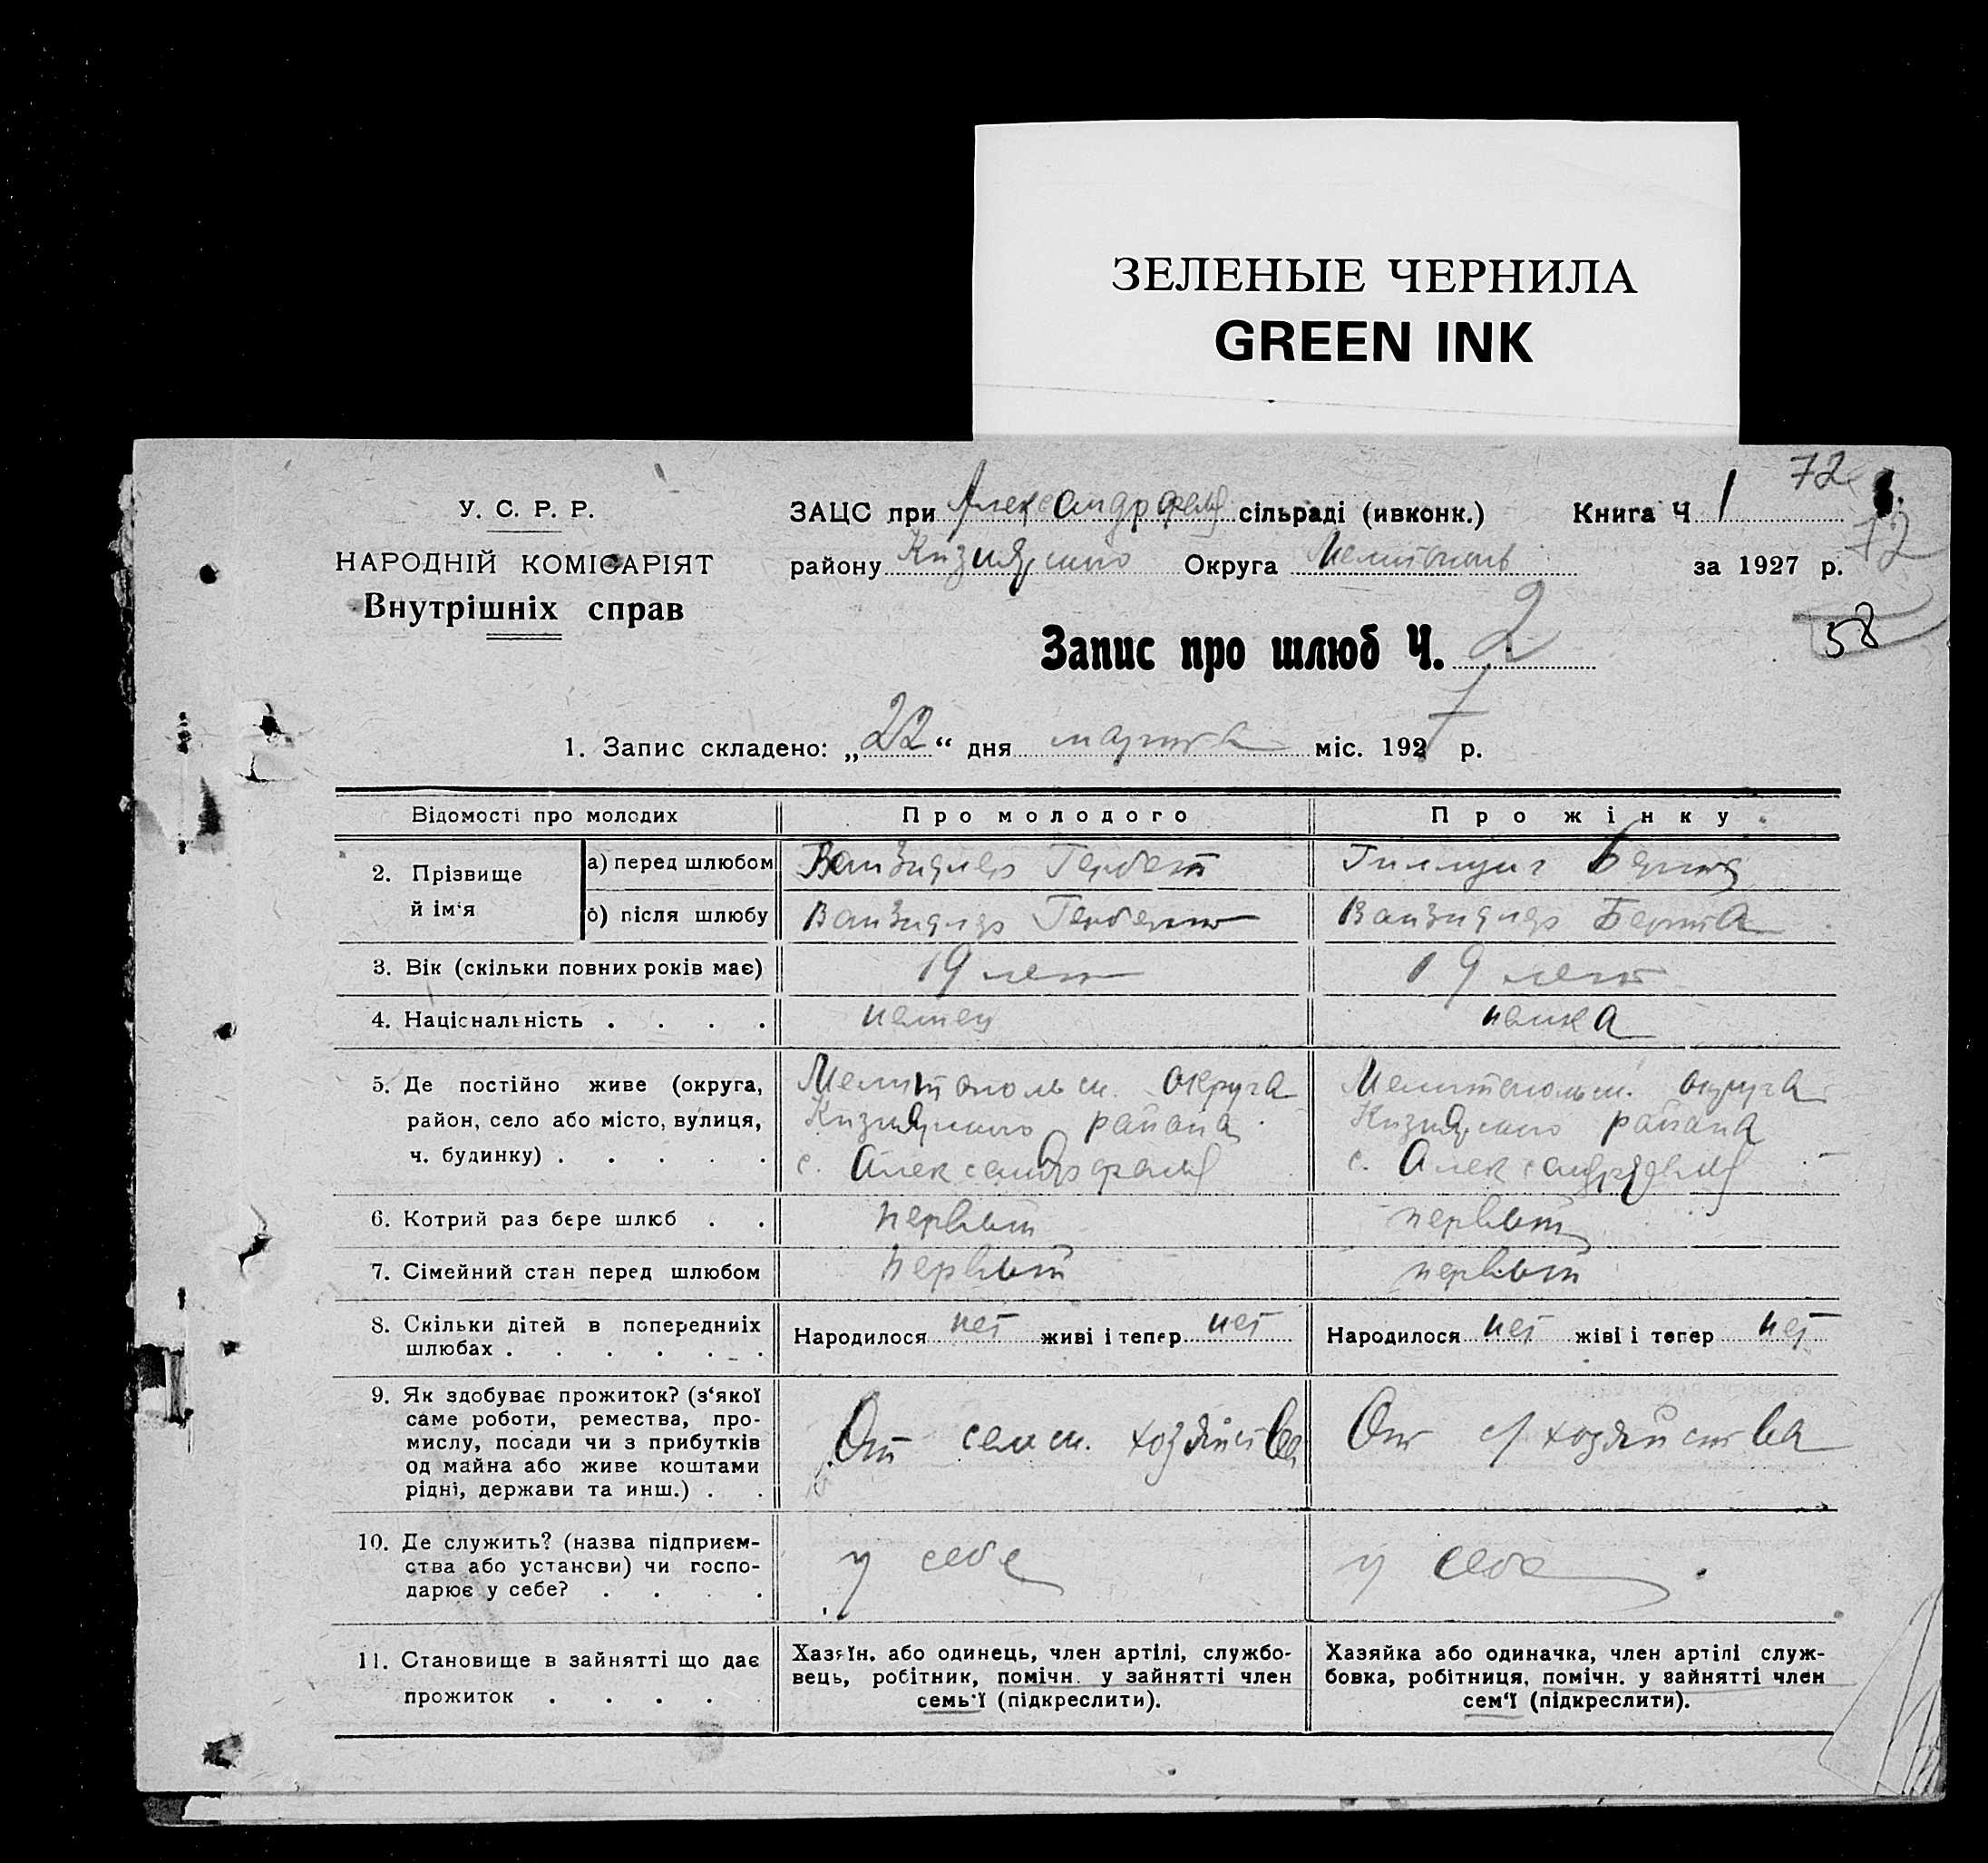 ЗЕЛЕНЫЕ ЧЕРНИЛА
GREEN INK
72
У. С. Р. Р.
ЗАЦС при Александрфельд сільраді (ивконк.) Книга Ч 1
72
НАРОДНІЙ КОМІСАРІЯТ
Внутрішніх справ
району Кизиярского Округа Мелитополь за 1927 р.
58
Запис про шлюб Ч. 2
1. Запис складено: „22“ дня марта міс. 1927 р.
Відомості про молодих Про молодого Про жінку
2. Прізвище й ім‘я
а) перед шлюбом Герберт Берта
б) після шлюбу Герберт Берта
3. Вік (скільки повних років має) 19 лет 19 лет
4. Національність . . . . немец немка
5. Де постійно живе (округа, Мелитопольск. округа Мелитопольск. округа
район, село або місто, вулиця, Кизиярского района Кизиярского района
ч. будинку) . . . . . с. Александрфельд с. Александрфельд
6. Котрий раз бере шлюб . . первый первый
7. Сімейний стан перед шлюбом первый первый
8. Скільки дітей в попередниіх
шлюбах . . . . . .
Народилося нет живі і тепер нет Народилося нет жіві і тепер нет
9. Як здобуває прожиток? (з‘якої
саме роботи, ремества, про-
мислу, посади чи з прибутків
од майна або живе коштами
рідні, держави та инш.) . .
От сельск. хозяйства От с/хозяйства
10. Де служить? (назва підприєм-
ства або установи) чи госпо-
дарює у себе? . . . .
у себе у себе
11. Становище в зайнятті що дає
прожиток . . . . .
Хазяїн. або одинець, член артілі, службо-
вець, робітник, помічн. у зайнятті член
семь‘ї (підкреслити).
Хазяйка або одиначка, член артілі служ-
бовка, робітниця, помічн. у зайнятті член
сем‘ї (підкреслити).